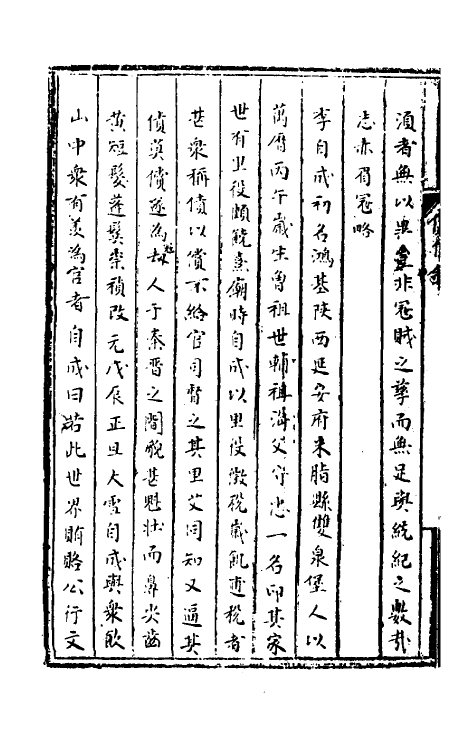 須者無以異彙非冦賊之孳而無足與統紀之數哉
志赤眉冦略
李自成初名鴻基陝西延安府米脂縣雙泉堡人以
萬曆丙午歲生曾祖世輔祖海父守忠一名印其家
世有卫役頗饒熹廟時自成以里役徵稅歲飢逋稅者
甚衆稱債以償不給官司督之其里艾同知又逼其
債莫償遂為劫人于秦晋之間貌甚魁壮而鼻尖齒
黄短髮蓬鬆崇禎改元戊辰正旦大雪自成與衆飲
山中衆有羨為官者自成曰若此世界賄賂公行文